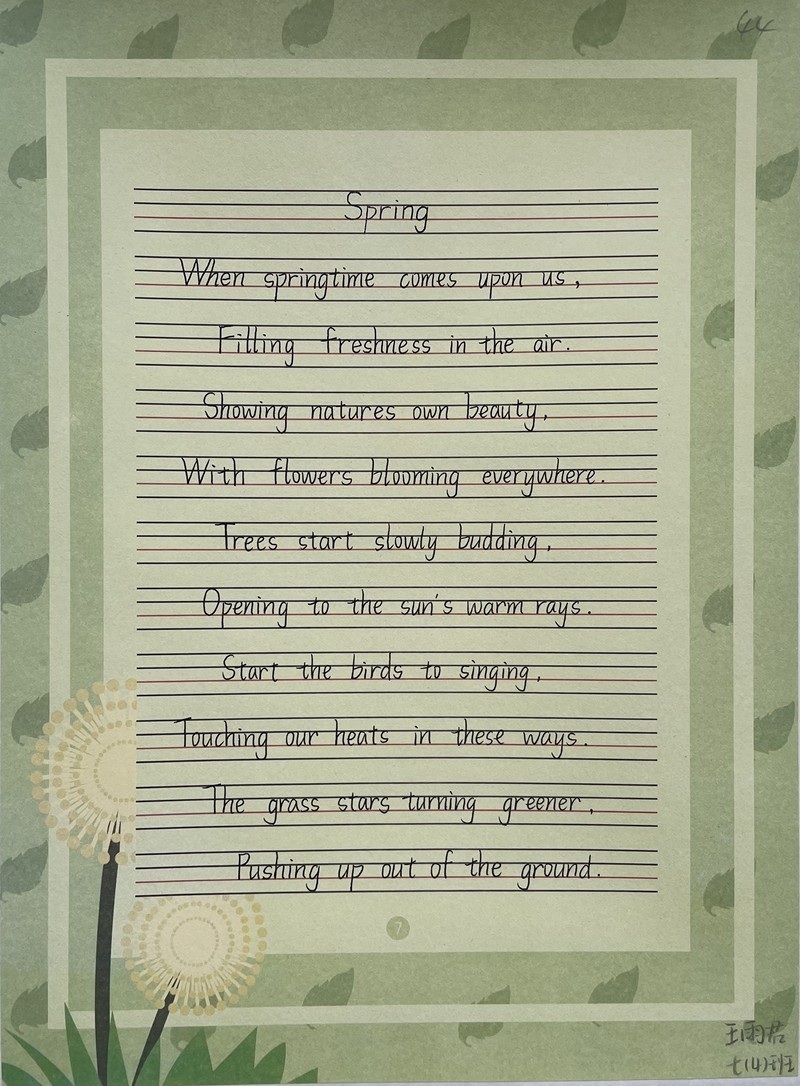 44
Spring
When springtime comes upon us,
Filling freshness in the air.
Showing natures own beauty,
With flowers blooming everywhere.
Trees start slowly budding,
Opening to the sun's warm rays.
Start the birds to singing,
Touching our heats in these ways.
The grass stars turning greener,
Pushing up out of the ground.
7
王雨君
七(4)班